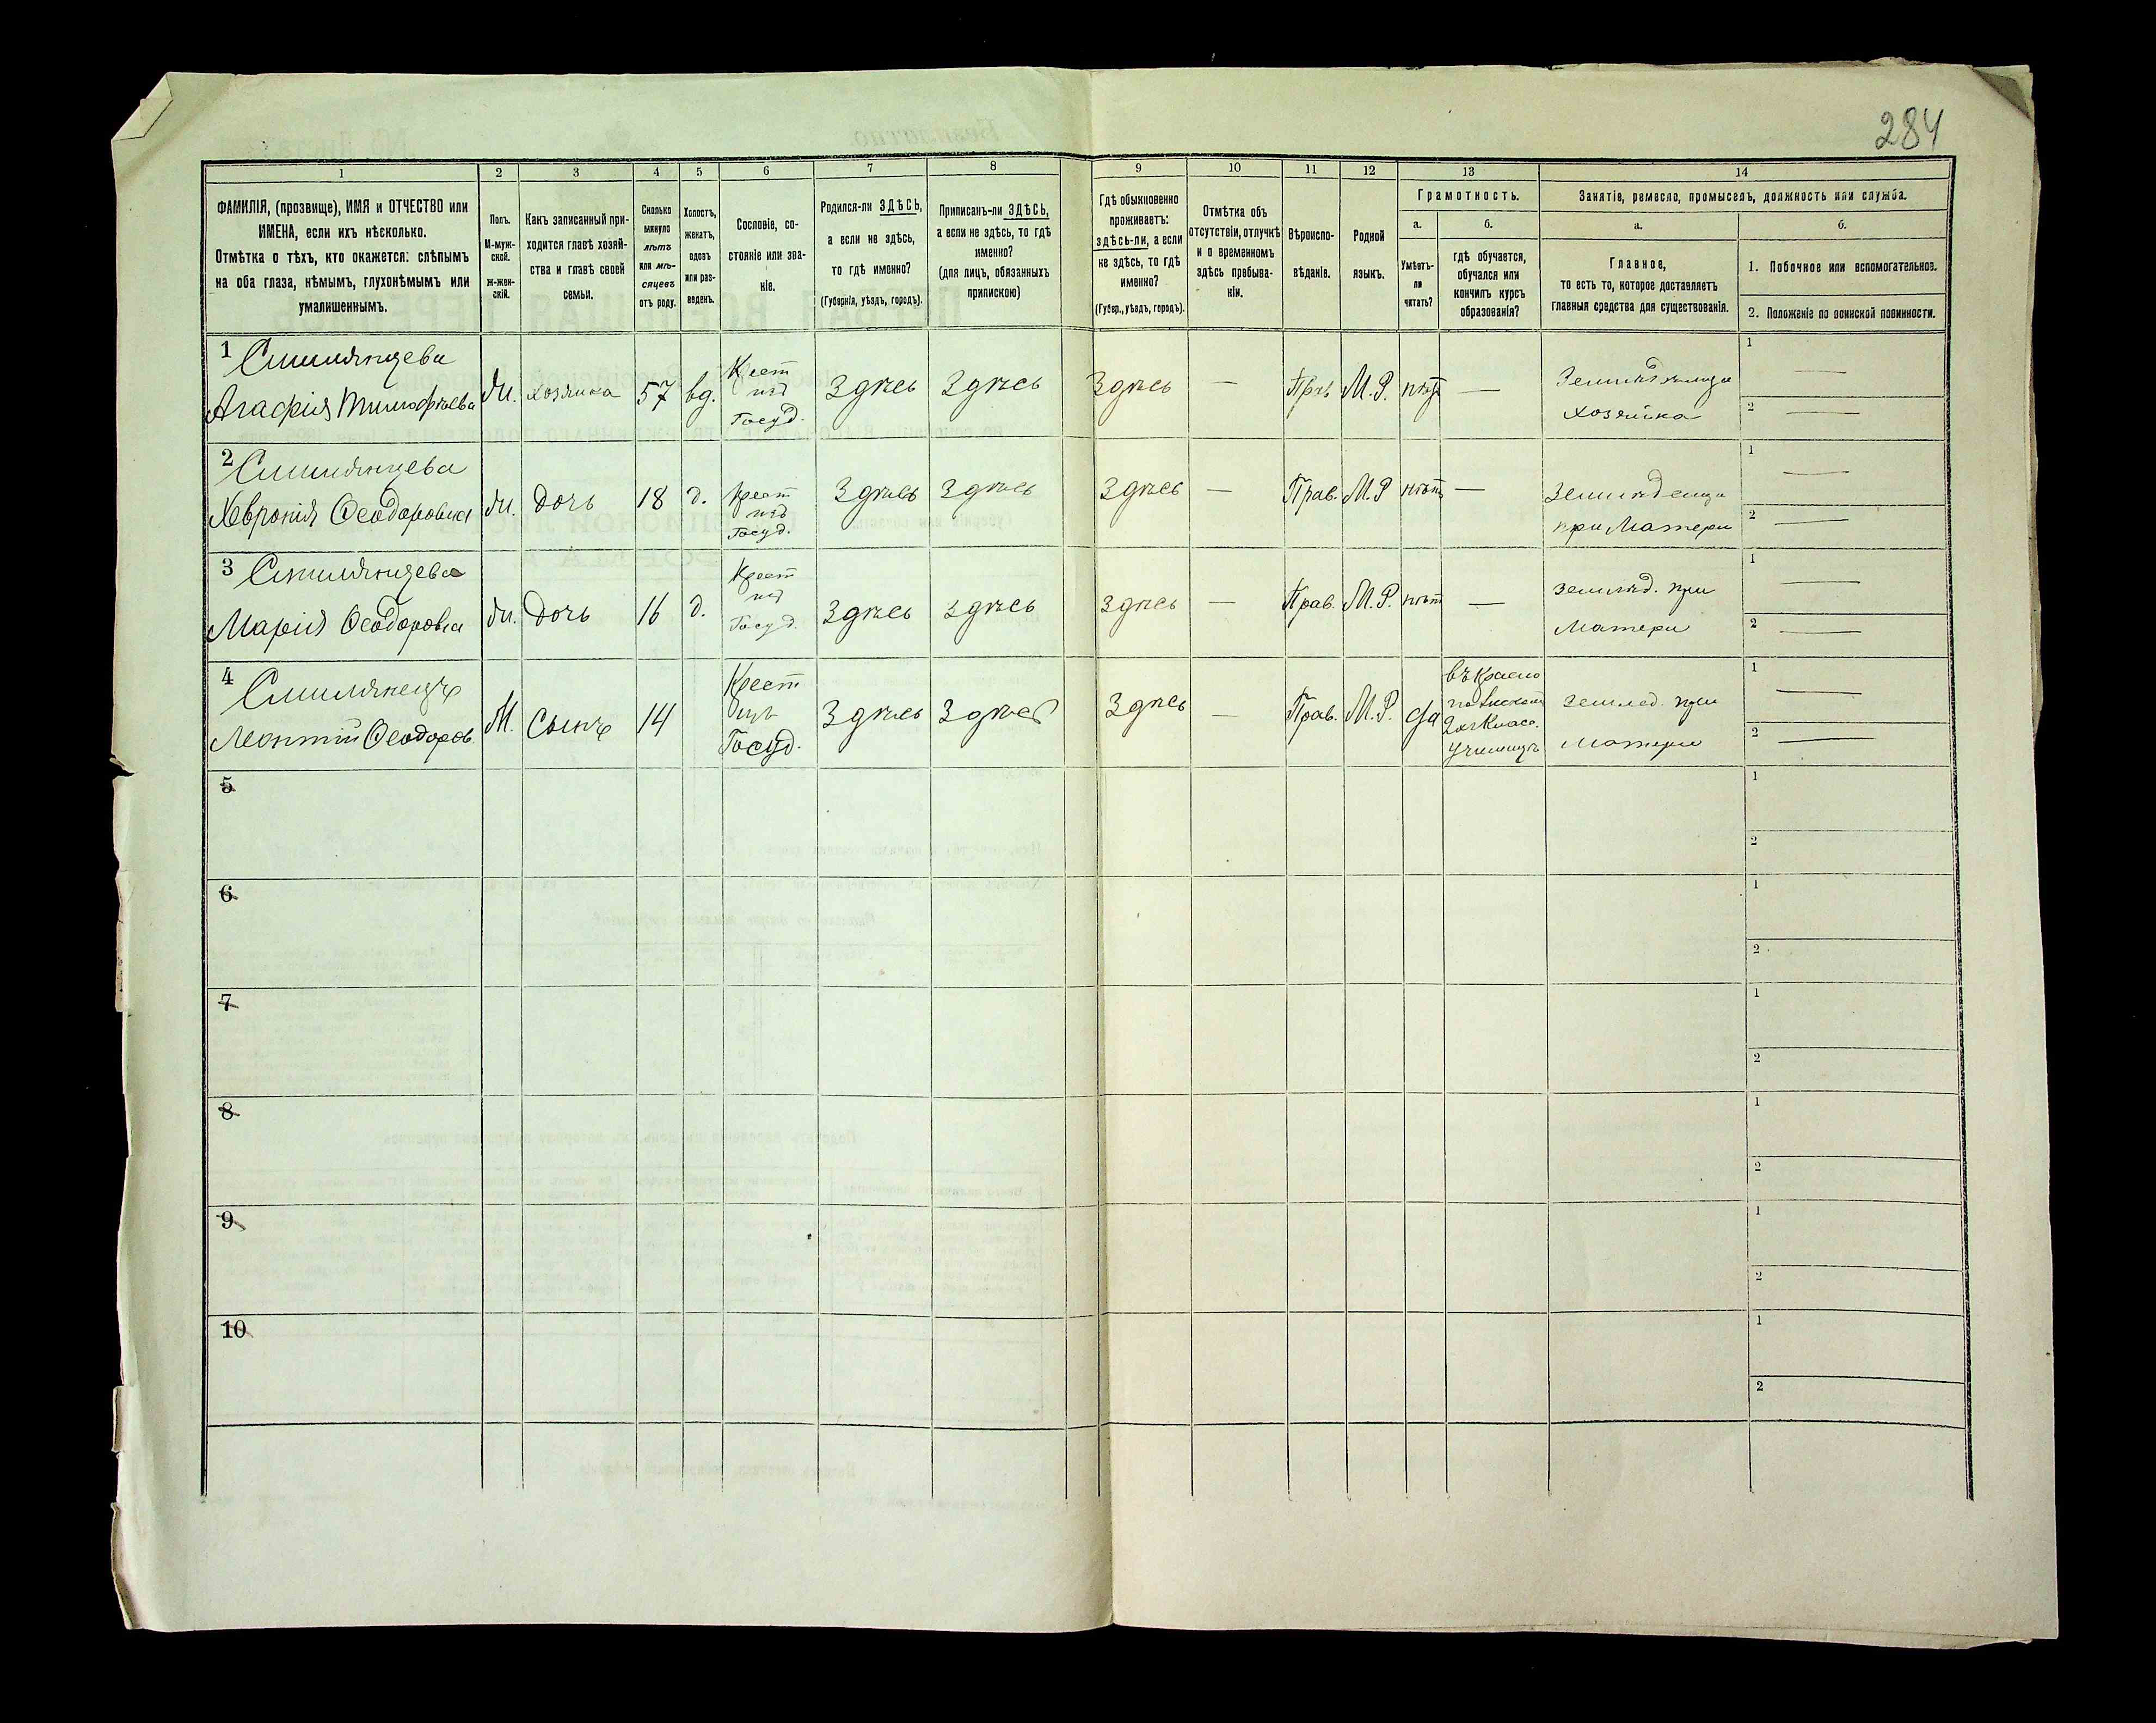 284
1 2 3 4 5 6 7 8 9 10 11 12 13 14
ФАМИЛІЯ, (прозвище), ИМЯ и ОТЧЕСТВО или
ИМЕНА, если ихъ нѣсколько.
Отмѣтка о тѣхъ, кто окажется: слѣпымъ
на оба глаза, нѣмымъ, глухонѣмымъ или
умалишеннымъ.
Полъ.
М-муж-
ской.
Ж-жен-
скій.
Какъ записанный при-
ходится главѣ хозяй-
ства и главѣ своей
семьи.
Сколько
минуло
лѣтъ
или мѣ-
сяцевъ
отъ роду.
Холостъ,
женатъ,
вдовъ
или раз-
веденъ.
Сословіе, со-
стояніе или зва-
ніе.
Родился-ли ЗДѢСЬ,
а если не здѣсь,
то гдѣ именно?
(Губернія, уѣздъ, городъ).
Приписанъ-ли ЗДѢСЬ,
а если не здѣсь, то гдѣ
именно?
(для лицъ, обязанныхъ
припискою)
Гдѣ обыкновенно
проживаетъ:
здѣсь-ли, а если
не здѣсь, то гдѣ
именно?
(Губер., уѣздъ, городъ).
Отмѣтка объ
отсутствіи, отлучкѣ
и о временномъ
здѣсь пребыва-
ніи.
Вѣроиспо-
вѣданіе.
Родной
языкъ.
Грамотность.
а.
Умѣетъ-
ли
читать?
б.
гдѣ обучается,
обучался или
кончилъ курсъ
образованія?
Занятіе, ремесло, промыселъ, должность или служба.
а.
Главное,
то есть то, которое доставляетъ
главныя средства для существованія.
б.
1. Побочное или вспомогательное.
2. Положеніе по воинской повинности.
1 Смилянцева
Агафія Тимофѣева
Ж. хозяйка 57 вд.
Крест
изъ
Госуд.
Здѣсь Здѣсь Здѣсь — М.Р. нѣтъ —
хозяйка
1 —
2 —
2 Смилянцева
Хевронія Ѳеодоровна
Ж. дочь 18 д.
Крест
изъ
Госуд.
Здѣсь Здѣсь Здѣсь — Прав. М.Р нѣтъ —
при Матери
1 —
2 —
3 Смилянцева
Марія Ѳеодоровна
Ж. дочь 16 д.
Крест
изъ
Госуд.
Здѣсь Здѣсь Здѣсь — Прав. М.Р. нѣт —
землед. при
Матери
1 —
2 —
4 Смилянецъ
Леонтій Ѳеодоров
М. сынъ 14
Крест
изъ
Госуд.
Здѣсь Здѣсь Здѣсь — Прав. М.Р. да
въ Красно
2хъ Класс.
училищѣ
землед. при
Матери
1 —
2 —
5 1
2
6 1
2
7 1
2
8 1
2
9 1
2
10 1
2